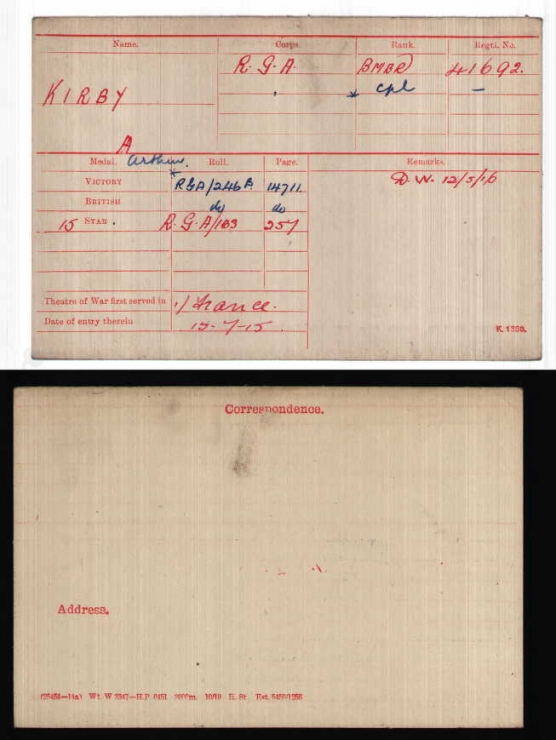 Name. Corps. Rank. Regtl. No.
R.G.A. BMBR 41692.
KIRBY * Cpl —
A
Arthur.
Medal. Roll. Page. Remarks.
VICTORY * RGA/246B 14711. D.W. 12/5/16
BRITISH do do
15 STAR. R.G.A/103 257
Theatre of War first served in 1) France.
Date of entry therein 15-7-15.
K. 1380.
Correspondence.
Address.
Wt. W 3347—H.P. 10/19 K. St.